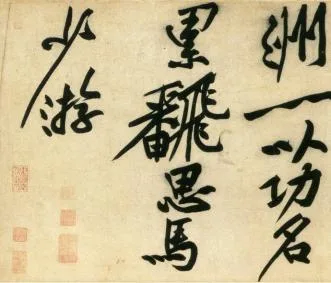 洲一以功名
累飜思馬
少游